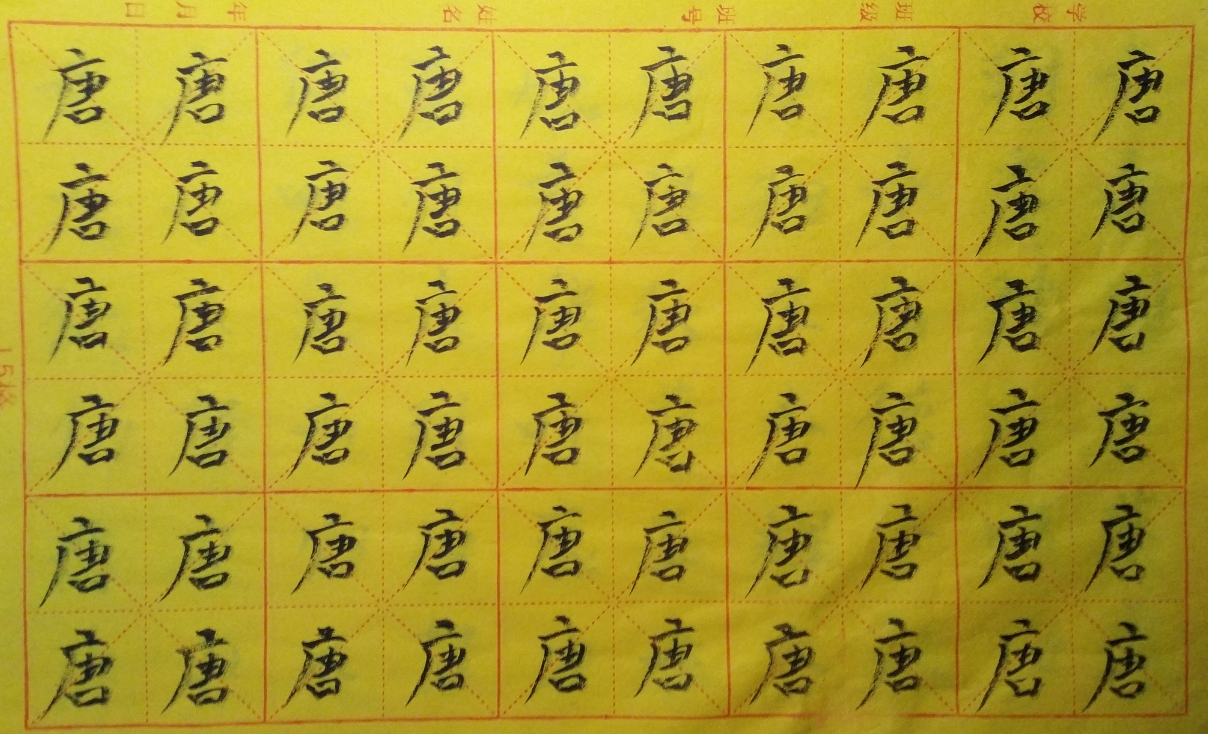 学校 班级 班号 姓名 年 月 日
唐唐唐唐唐唐唐唐唐唐
唐唐唐唐唐唐唐唐唐唐
唐唐唐唐唐唐唐唐唐唐
唐唐唐唐唐唐唐唐唐唐
唐唐唐唐唐唐唐唐唐唐
唐唐唐唐唐唐唐唐唐唐